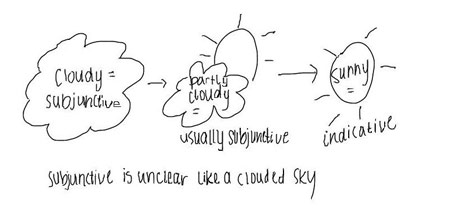 cloudy =
subjunctive
partly
cloudy
=
usually subjunctive
sunny
=
indicative
subjunctive is unclear like a clouded sky